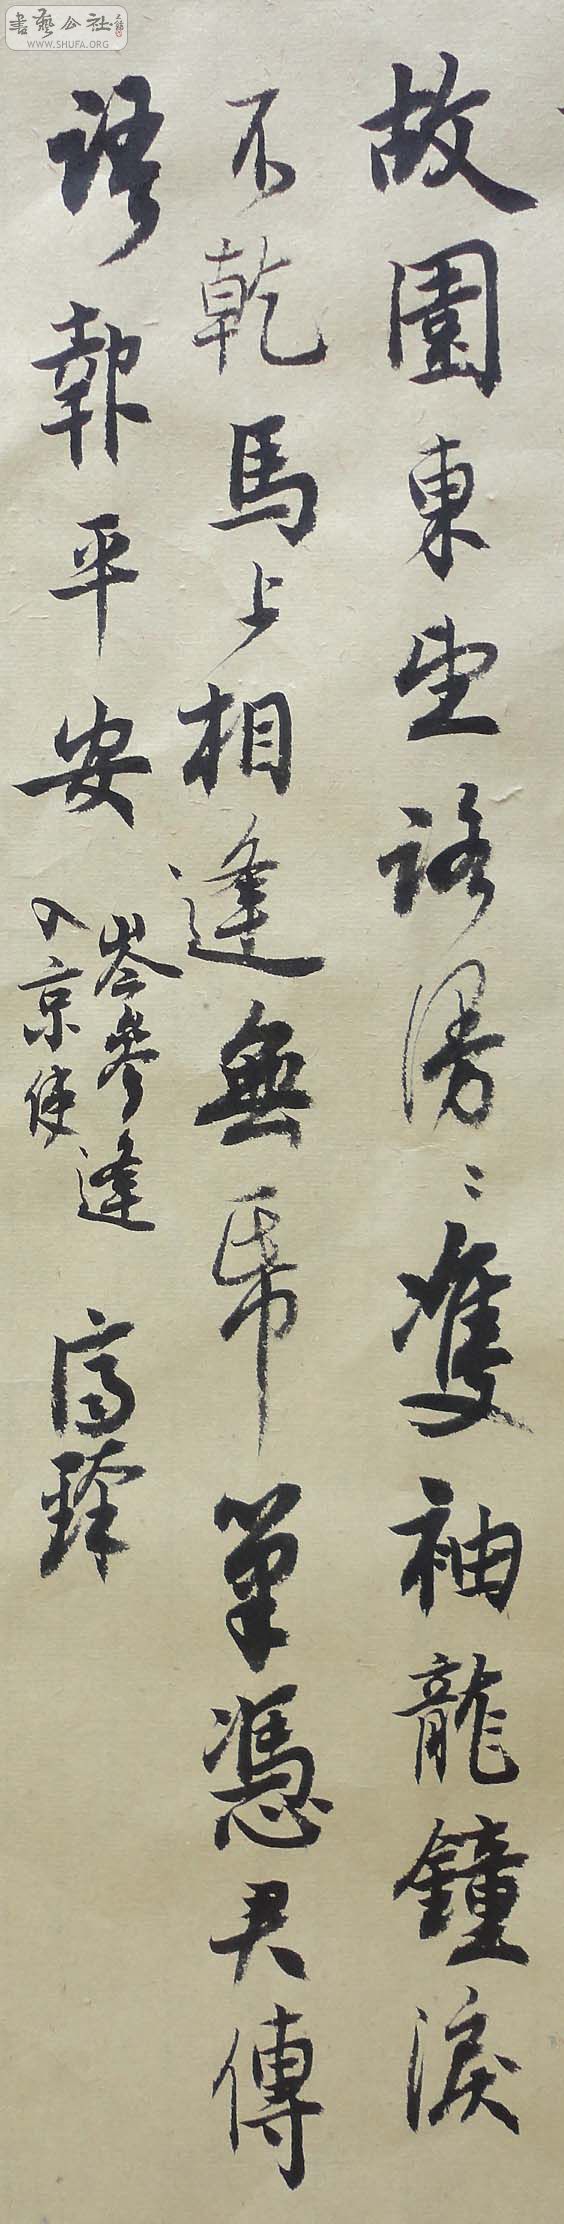 書藝公社
WWW.SHUFA.ORG
故園東望路漫々雙袖龍鐘淚
不乾馬上相逢無帋筆憑君傳
語報平安
岑參逢
入京使